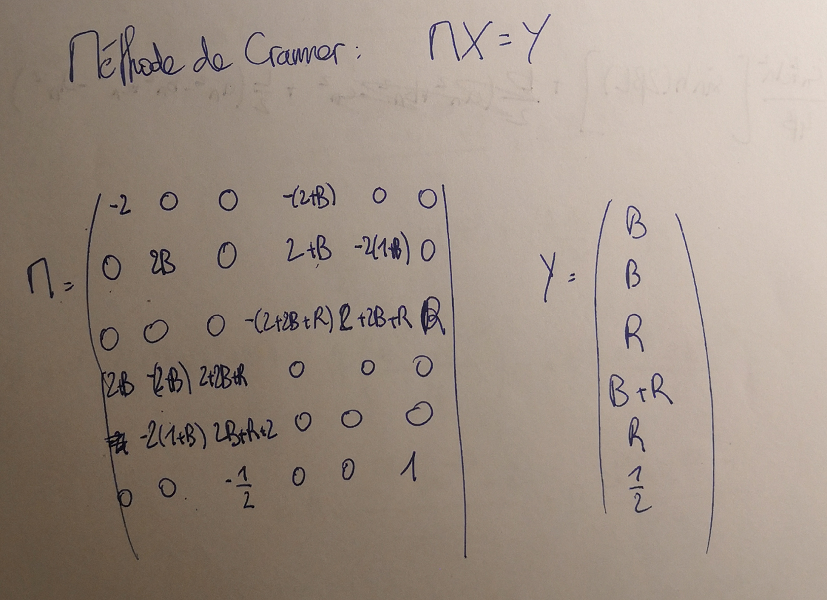 Méthode de Cramer : MX = Y
-2 0 0 -(2+B) 0 0
0 2B 0 2+B -2(1+B) 0
M = 0 0 0 -(2+2B+R) 2+2B+R R
2+B -(2+B) 2+2B+R 0 0 0
-2(1+B) 2B+R+2 0 0 0
0 0 -1/2 0 0 1
Y =
B
B
R
B+R
R
1/2